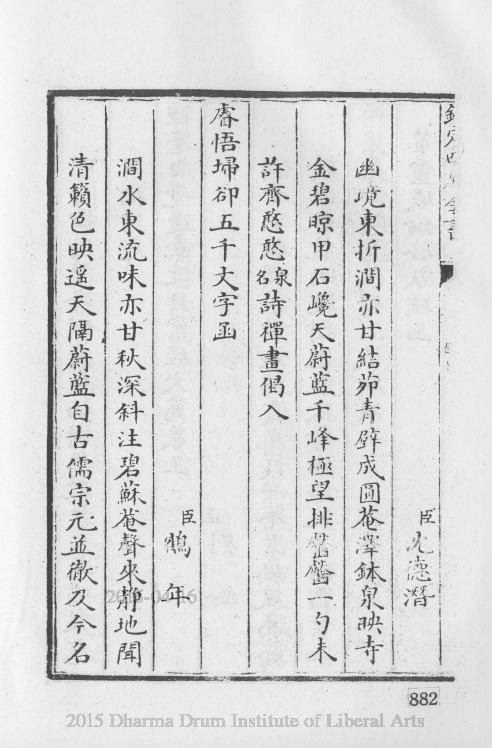 欽定四庫全書
臣沈德潛
幽境東折澗亦甘結茆青壁成圓菴澤鉢泉映寺
金碧晾甲石巉天蔚藍千峰極望排鬖鬖一勺未
許齊憨憨泉名詩禪畫偈入
睿悟埽卻五千文字函
臣鶴年
澗水東流味亦甘秋深斜注碧蘇菴聲來靜地聞
清籟色映遙天隔蔚藍自古儒宗元並徹及今名
882
2015 Dharma Drum Institute of Liberal Arts